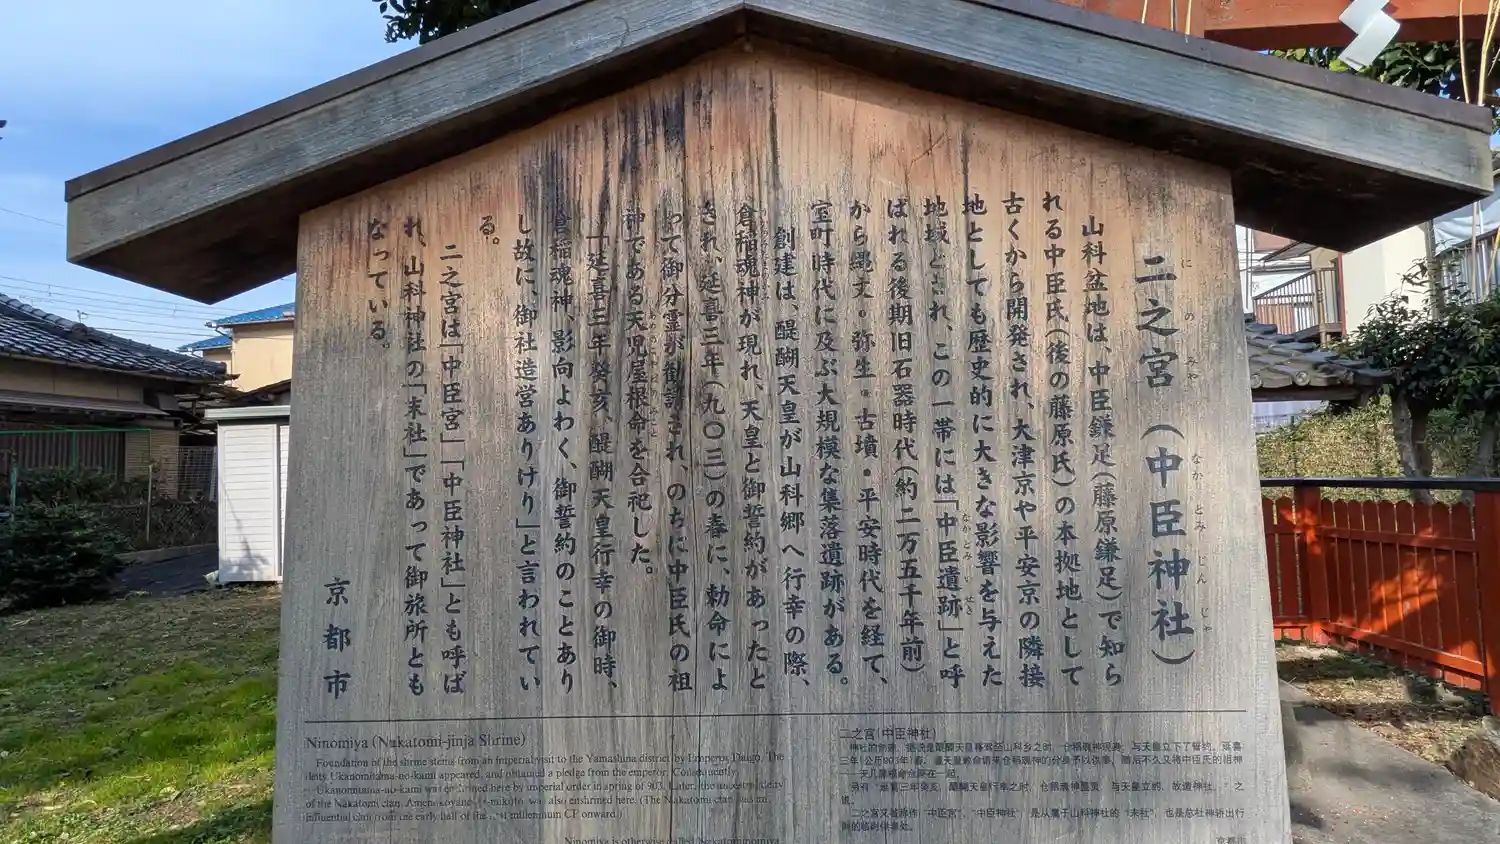 二之宮（中臣神社）
にのみや
なかとみじんじゃ
山科盆地は、中臣鎌足（藤原鎌足）で知ら
れる中臣氏（後の藤原氏）の本拠地として
古くから開発され、大津京や平安京の隣接
地としても歴史的に大きな影響を与えた
地域とされ、この一帯には「中臣遺跡」と呼
なかとみいせき
ばれる後期旧石器時代（約二万五千年前）
から縄文・弥生・古墳・平安時代を経て、
室町時代に及ぶ大規模な集落遺跡がある。
創建は、醍醐天皇が山科郷へ行幸の際、
倉稲魂神が現れ、天皇と御誓約があったと
され、延喜三年（九〇三）の春に、勅命によ
って御分霊が勧請され、のちに中臣氏の祖
神である天児屋根命を合祀した。
「延喜三年癸亥、醍醐天皇行幸の御時、
倉稲魂神、影向よわく、御誓約のことあり
し故に、御社造営ありけり」と言われてい
る。
二之宮は「中臣宮」「中臣神社」とも呼ば
れ、山科神社の「末社」であって御旅所とも
なっている。
京都市
Ninomiya (Nakatomi-jinja Shrine)
Foundation of the shrine stems from an imperial visit to the Yamashina district by Emperor Daigo. The
deity Ukanomitama-no-kami appeared, and obtained a pledge from the emperor. Consequently
Ukanomitama-no-kami was enshrined here by imperial order in spring of 903. Later, the ancestral deity
of the Nakatomi clan, Amenokoyane-no-mikoto, was also enshrined here. (The Nakatomi clan was an
influential clan from the early half of the first millennium CE onward.)
Ninomiya is otherwise called
二之宫(中臣神社)
神社的创建，据说是醍醐天皇移驾至山科乡之时，仓稻魂神现身，与天皇立下了誓约。延喜
三年(公历903年)春，遵天皇敕命请来仓稻魂神的分身予以供奉，随后不久又将中臣氏的祖神
另有“延喜三年癸亥，醍醐天皇行幸之时，仓稻魂神显灵，与天皇立约，故造神社。”之
说。
二之宫又被称作“中臣宫”、“中臣神社”，是从属于山科神社的“末社”，也是
京都市